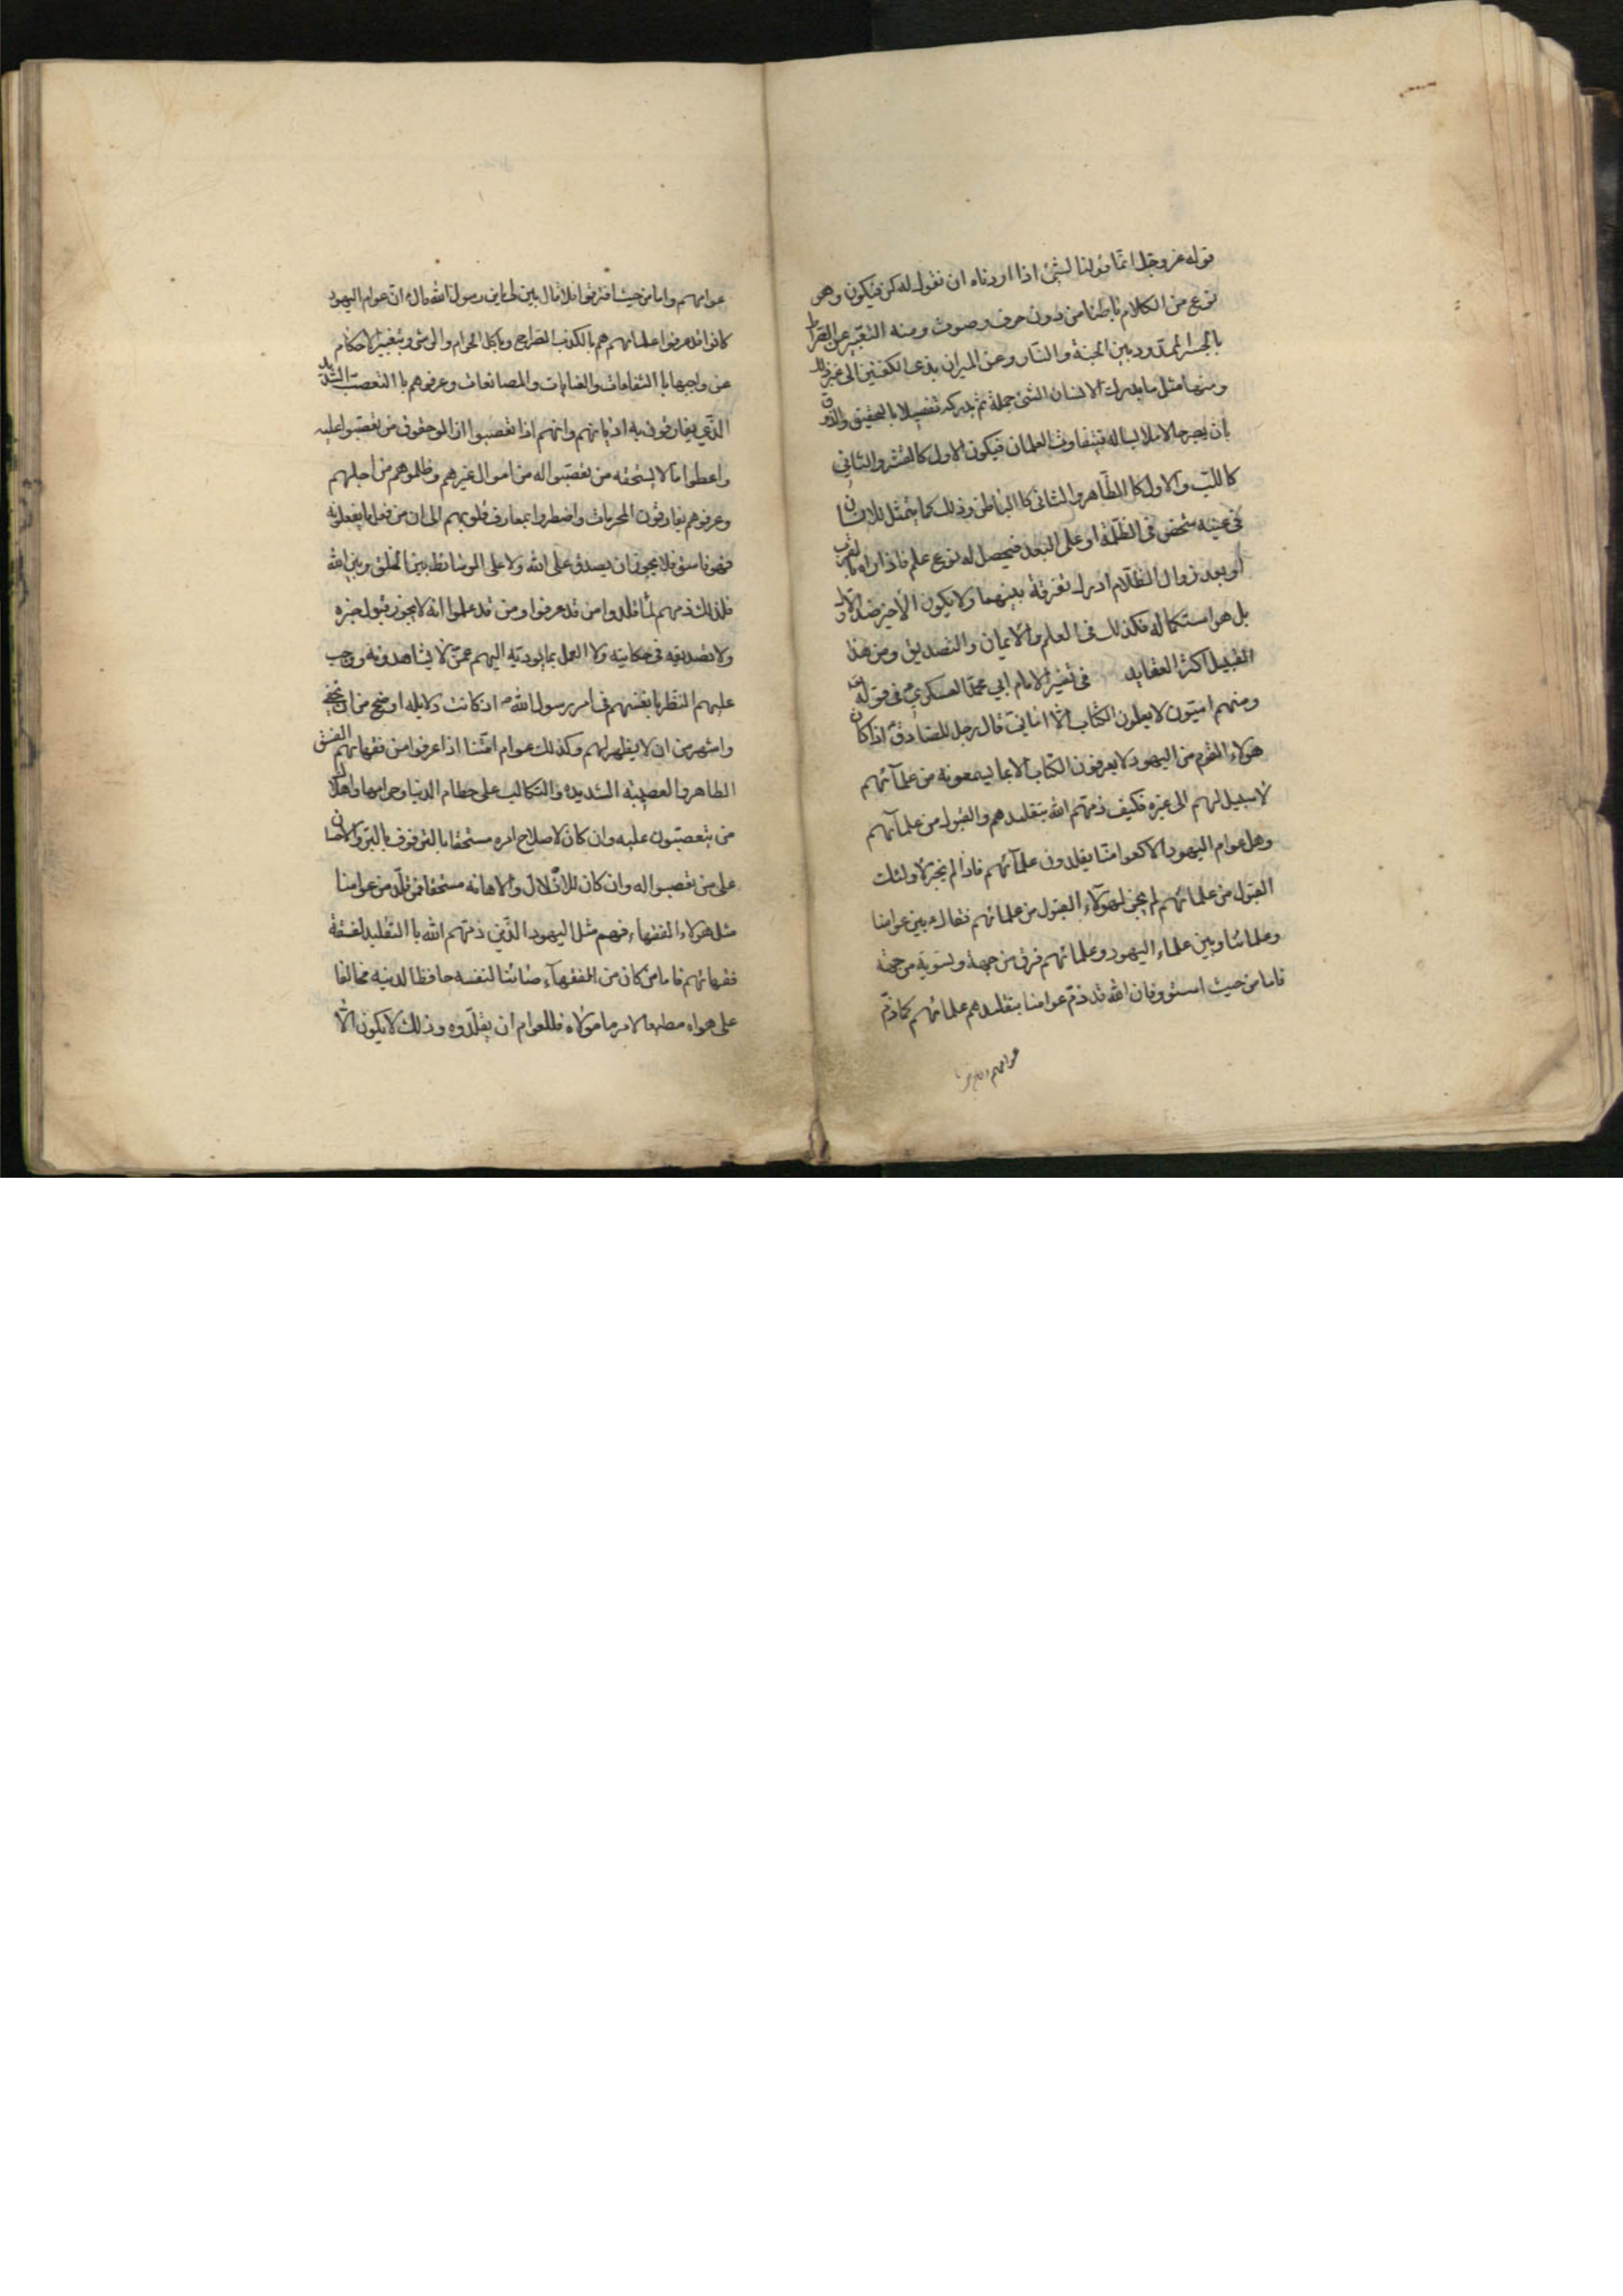 قوله عز وجل انما قولنا لشئ اذا اردناه ان نقول له كن فيكون وهو
نوع من الكلام باطنا من دون حرف وصوت ومنه التعبير عن الصراط
بالجسر الممدود بين الجنة والنار وعن الميزان بذى الكفتين الى غير ذلك
ومنها مثل ما يدرك الانسان الشئ جملة ثم يدركه تفصيلا بالتحقيق والذوق
بان يصير حالا ملابسا له فيتفاوت العلمان فيكون الاول كالقشر والثانى
كاللب والاول كالظاهر والثانى كالباطن وذلك كما يتمثل للانسان
فى عينه شخص فى الظلمة او على البعد فيحصل له نوع علم فاذا راه بالقرب
او بعد زوال الظلام ادرك تفرقة بينهما ولا يكون الاخير ضد الاول
بل هو استكمال له فكذلك فى العلم والايمان والتصديق ومن هذا
القبيل اكثر العقايد فى تفسير الامام ابي محمد العسكرى ع فى قوله تعالى
ومنهم اميون لا يعلمون الكتاب الا امانى قال رجل للصادق ع اذا كان
هولاء القوم من اليهود لا يعرفون الكتاب الا بما يسمعونه من علمائهم
لا سبيل لهم الى غيره فكيف ذمهم الله بتقليدهم والقبول من علمائهم
وهل عوام اليهود الا كعوامنا يقلدون علمائهم فاذا لم يجز لاولئك
القبول من علمائهم لم يجز لهؤلاء القبول من علمائهم فقال ع بين عوامنا
وعلمائنا وبين علماء اليهود وعلمائهم فرق من جهة وتسوية من جهة
فاما من حيث استووا فان الله قد ذم عوامنا بتقليدهم علمائهم كما ذم
عوامهم واما من حيث
عوامهم واما من حيث افترقوا فلا قال بين لى يابن رسول الله قال ع ان عوام اليهود
كانوا قد عرفوا علمائهم هم بالكذب الصراح وباكل الحرام والرشى وبتغيير الاحكام
عن واجبها بالشفاعات والعنايات والمصانعات وعرفوهم بالتعصب الشديد
الذي يفارقون به اديانهم وانهم اذا تعصبوا ازالوا حقوق من تعصبوا عليه
واعطوا ما لا يستحقه من تعصبوا له من اموال غيرهم وظلموهم من اجلهم
وعرفوهم يقارفون المحرمات واضطروا بمعارف قلوبهم الى ان من فعل ما يفعلونه
فهو فاسق فلا يجوز ان يصدق على الله ولا على الوسائط بين الخلق وبين الله
فلذلك ذمهم لما قلدوا من قد عرفوا ومن قد علموا انه لا يجوز قبول خبره
ولا تصديقه فى حكايته ولا العمل بما يؤديه اليهم عمن لا يشاهدونه ووجب
عليهم النظر بانفسهم فى امر رسول الله ص اذ كانت دلايله اوضح من ان تخفى
واشهر من ان لا يظهر لهم وكذلك عوام امتنا اذا عرفوا من فقهائهم الفسق
الظاهر والعصبية الشديده والتكالب على حطام الدنيا وحرامها واهلاك
من يتعصبون عليه وان كان لاصلاح امره مستحقا بالترفوف بالبر والاحسان
على من تعصبوا له وان كان للاذلال والاهانة مستحقا فمن قلد من عوامنا
مثل هولاء الفقهاء فهم مثل اليهود الذين ذمهم الله بالتقليد لفسقة
فقهائهم فاما من كان من الفقهاء صائنا لنفسه حافظا لدينه مخالفا
على هواه مطيعا لامر مولاه فللعوام ان يقلدوه وذلك لا يكون الا